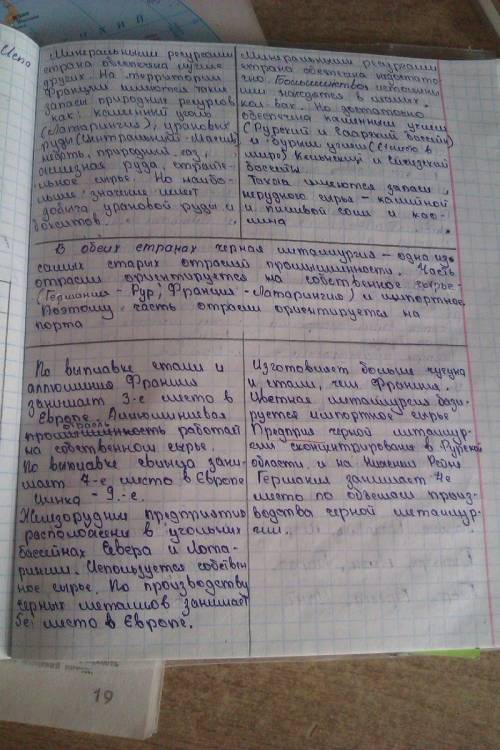 Исто
Минеральными ресурсами
страна обеспечена лучше
других. На территории
Франции имеются такие
запасы природных ресурсов
как: каменный уголь
(Лотарингия), урановых
руды (Центральный Массив)
нефть, природный газ,
железная руда, строите-
льное сырьё. Но наибо-
льшее значение имеет
добыча урановой руды и
бокситов.
Минеральными ресурсами
страна обеспечена недостато
чно. Большинство
находятся в малых
кол-вах. Но достаточно
обеспечена каменным углем
(Рурский и Саарский бассейн)
и бурым углем (1 место в
мире)
бассейны
Также имеются запасы
нерудного сырья - калийной
и пищевой соли и као-
лина
В обеих странах черная металлургия - одна из
самых старых отраслей промышленности. Часть
отрасли ориентируется на собственное сырье
(Германия - Рур; Франция - Лотарингия) и импортное
Поэтому часть отрасли ориентируется на
порта
По выплавке стали и
аллюминия Франция
занимает 3-е место в
Европе. Алюминиевая
отрасль
промышленность работает
на собственном сырье.
По выплавке свинца зани-
мает 4-е место в Европе
Цинка - 9-е.
Железорудные предприятия
расположены в угольных
бассейнах Севера и Лота-
рингии. Используется собствен
ное сырье. По производству
черных металлов занимает
5е место в Европе.
Изготовляет больше чугуна
и стали, чем Франция.
Цветная металлургия бази-
руется импортное сырье
Предприя черной металлур-
гии сконцентрированы в Рурской
области и на Нижнем Рейне
Германия занимает 4е
место по объемам произ-
водства черной металлур-
гии.
19